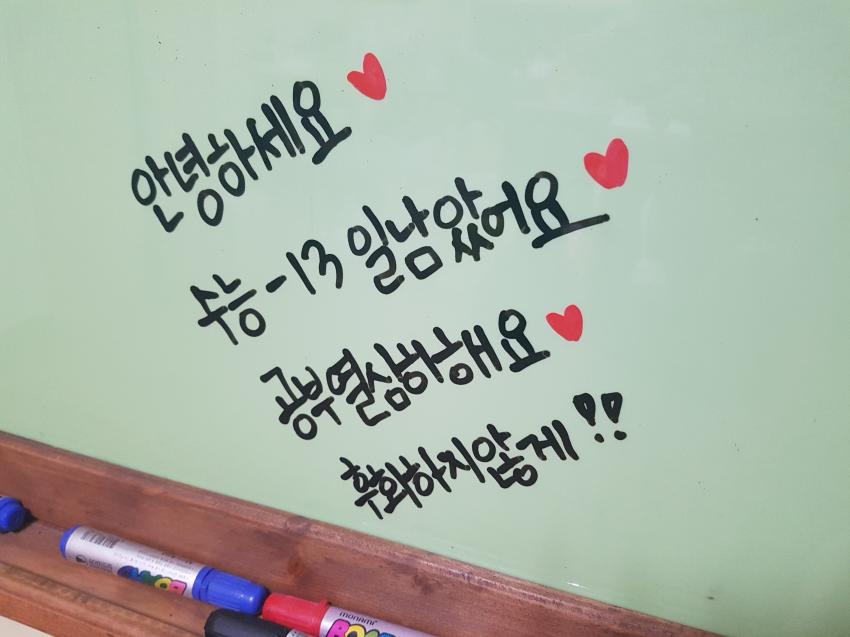 안녕하세요
수능-13일남았어요
공부열심히해요
후회하지않게!!
monami